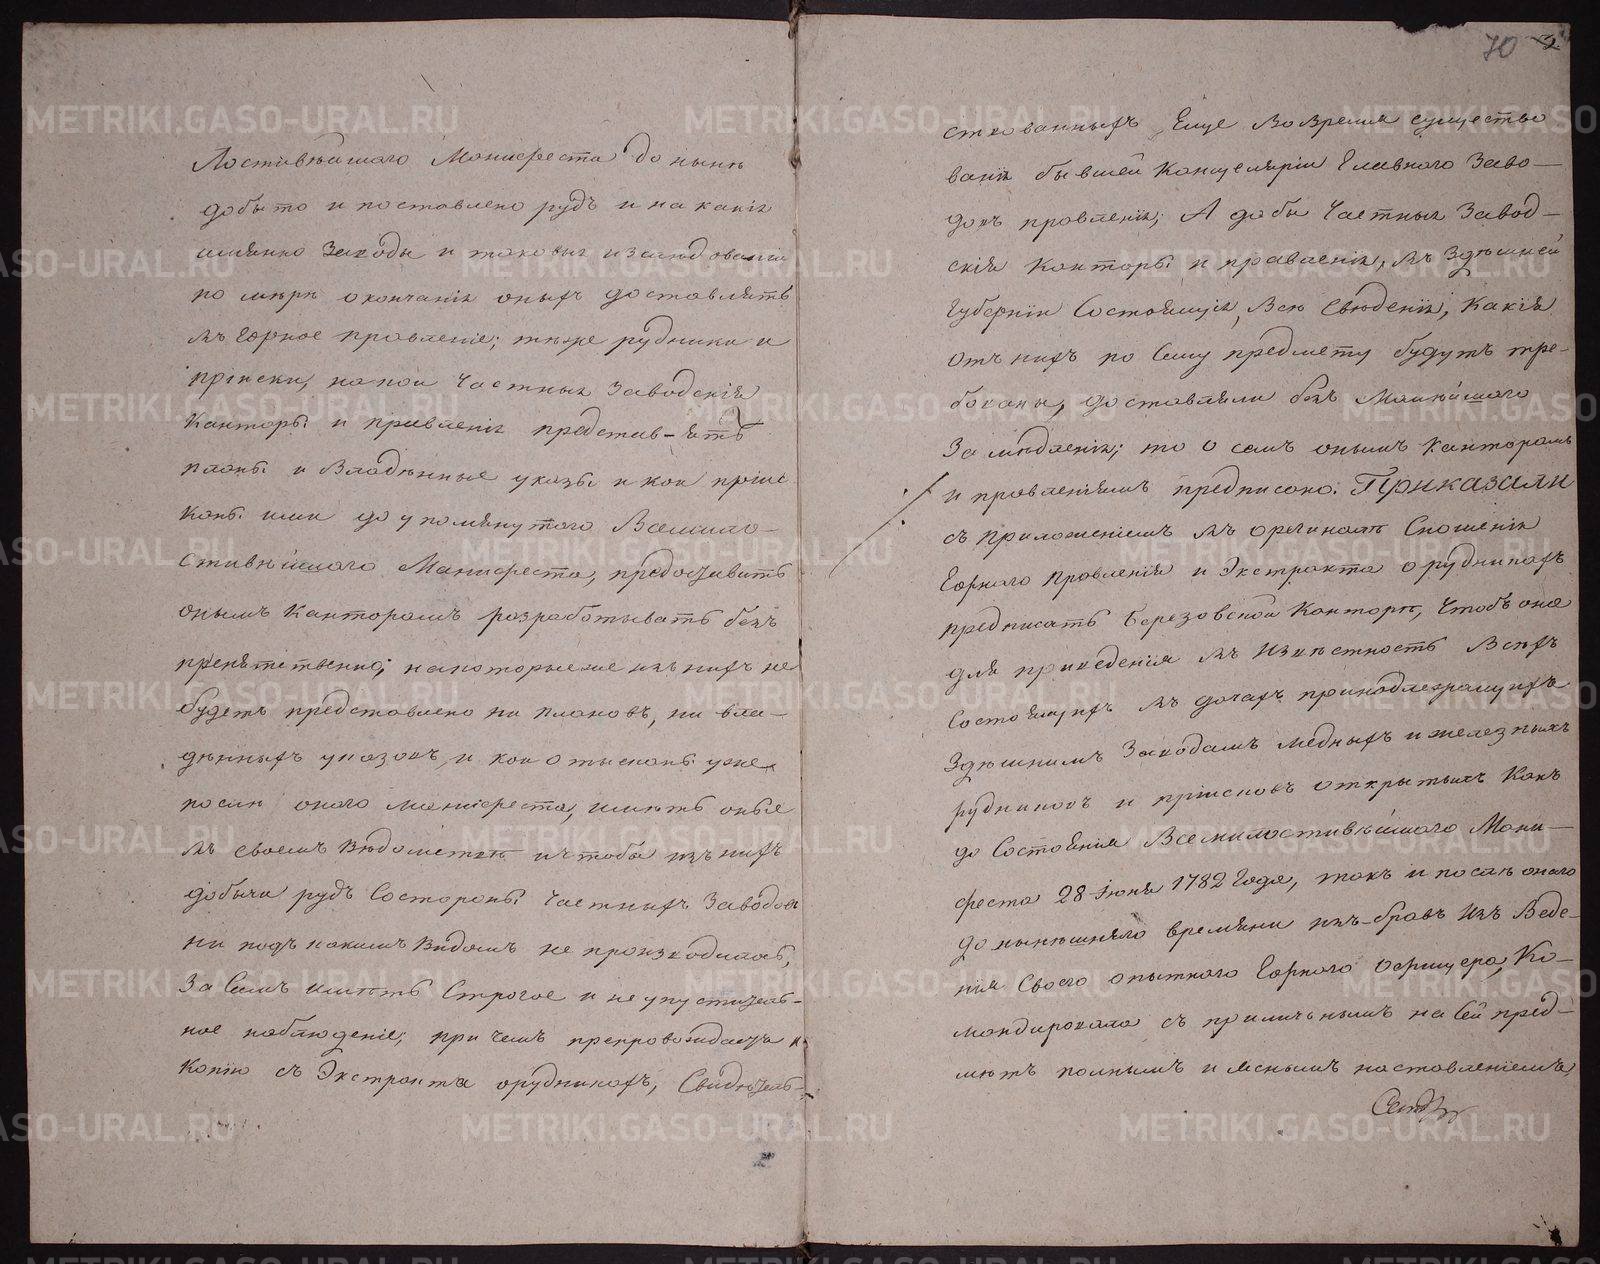 лостивѣйшаго Манифеста до нынѣ
добыто и поставлено рудъ и на какія
имянно заводы и таковыя изслѣдованіи
по мѣрѣ окончанія оныхъ доставлять
въ Горное правленіе; тѣже рудники и
пріиски, на кои частныя заводскія
Канторы и правленія представ-ятъ
планы и владѣнные указы и кои пріис
каны или до упомянутого Всемило-
стивѣйшаго Манифеста, предоставить
онымъ Канторамъ разрабатывать безъ
препятственно; на которыеже изъ нихъ не
будетъ представлено ни плановъ, ни вла-
дѣнныхъ указовъ, и кои отысканы уже
послѣ онаго манифеста, имѣть оные
въ своемъ вѣдомствѣ и чтобы изъ нихъ
добычи рудъ со стороны частныхъ заводовъ
ни подъ какимъ видомъ не производилось,
За симъ имѣть строгое и не упуститель-
ное наблюденіе; при чемъ препровождаетъ и
Копію съ Экстракта о рудникахъ, свидѣтель-
70
ствованныхъ Еще во время существо
ванія бывшей Канцеляріи Главнаго Заво-
довъ правленія; А дабы частныя завод-
скія Канторы и правленія, въ здѣшней
Губерніи состоящія, всѣ свѣденія, какія
отъ нихъ по сему предмету будутъ тре-
бованы, доставляли безъ малѣйшаго
замѣдленія; то о семъ онымъ Канторамъ
и правленіямъ предписано. Приказали
съ приложеніемъ въ оригиналѣ сношенія
Горнаго Правленія и Экстракта о рудникахъ
предписать Березовской Канторѣ, чтобъ она
для приведенія въ извѣстность всѣхъ
состоящихъ въ дачахъ принадлежащихъ
здѣшнимъ заводамъ мѣдныхъ и желѣзныхъ
рудниковъ и пріисковъ открытыхъ какъ
до состоянія Всемилостивѣйшаго Мани-
феста 28 Іюня 1782 года, такъ и послѣ онаго
до нынѣшняго времяни изъ-бравъ изъ веде-
нія своего опытнаго Горнаго офицера, Ко-
мандировала съ приличнымъ на сей пред-
мѣтъ полнымъ и яснымъ наставленіемъ,